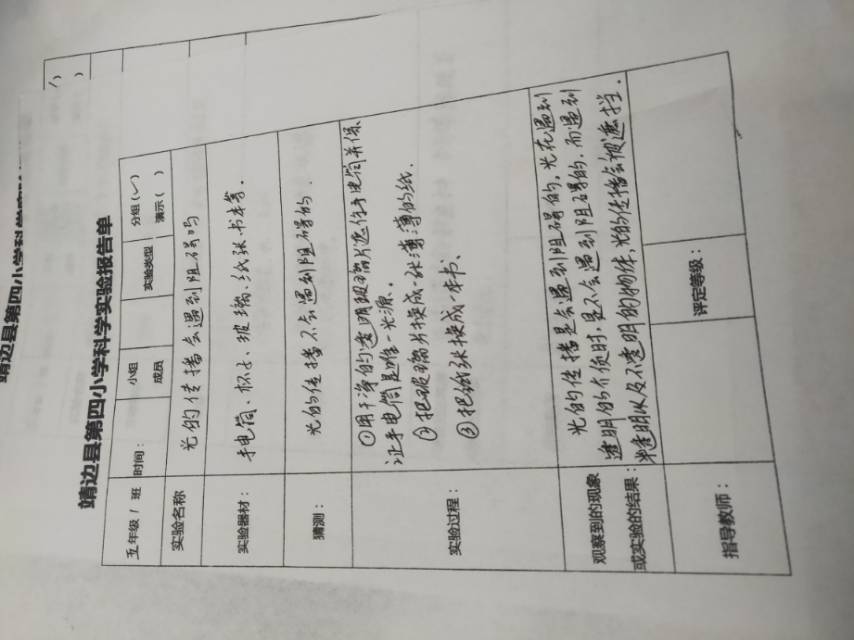 靖边县第四小学科学实验报告单
五年级1班 时间： 小组成员 实验类型 分组(✓) 演示( )
实验名称 光的传播会遇到阻碍吗
实验器材： 手电筒、杯子、玻璃、纸张、书本等.
猜测： 光的传播不会遇到阻碍的.
实验过程：
①用干净的透明玻璃片遮住手电筒并保
证手电筒是唯一光源.
②把玻璃片换成一张薄薄的纸.
③把纸张换成一本书.
观察到的现象或实验的结果：
光的传播是会遇到阻碍的,光在遇到
透明的介质时,是不会遇到阻碍的.而遇到
半透明以及不透明的物体,光的传播会被遮挡.
指导教师： 评定等级：